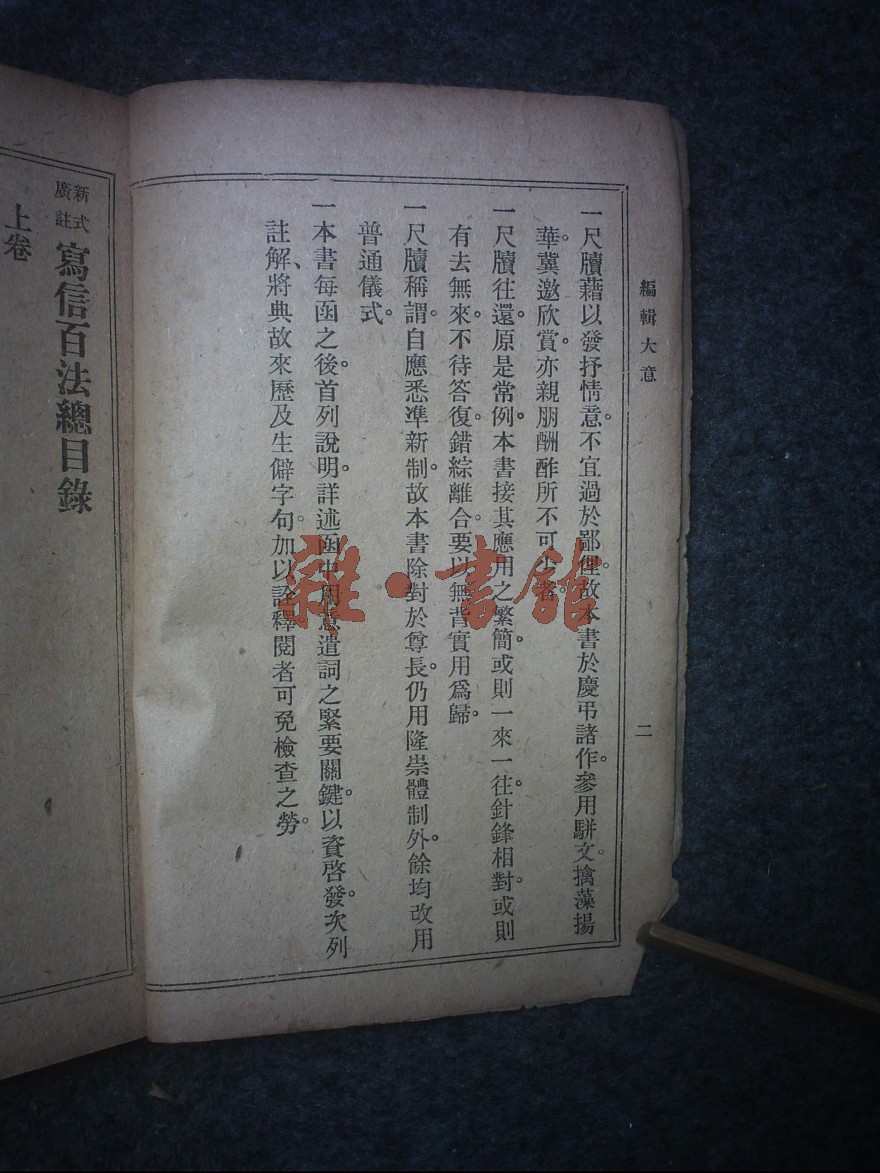 編輯大意
二
一尺牘藉以發抒情意。不宜過於鄙俚。故本書於慶弔諸作。參用駢文。擒藻揚
華。冀邀欣賞。亦親朋酬酢所不可少者。
一尺牘往還。原是常例。本書接其應用之繁簡。或則一來一往。針鋒相對。或則
有去無來。不待答復。錯綜離合。要以無背實用爲歸。
一尺牘稱謂。自應悉準新制。故本書除對於尊長。仍用隆崇體制外。餘均改用
普通儀式。
一本書每函之後。首列說明。詳述函中用意遣詞之緊要關鍵。以資啓發。次列
註解、將典故來歷及生僻字句。加以詮釋。閱者可免檢查之勞。
新式
廣註
寫信百法總目錄
上卷
雜·書館